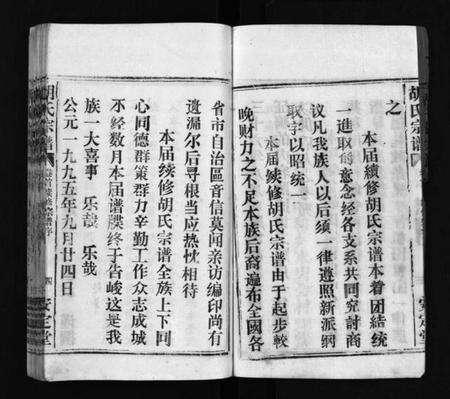 胡氏宗谱
安定堂
之
本届续修胡氏宗谱本着团结统
一进取创意念经各支系共同究討商
议凡我族人以后须一律遵照新派纲
取字以昭统一
本届续修胡氏宗谱由于起步較
晚财力之不足本族后裔遍布全國各
省市自治區音信莫闻亲访编印尚有
遗漏尔后寻根当应热忱相待
本届续修胡氏宗谱全族上下同
心同德群策群力辛勤工作众志成城
不经数月本届谱牒终于告峻这是我
族一大喜事 乐哉 乐哉
公元一九九五年九月廿四日
胡氏宗谱
四
安定堂